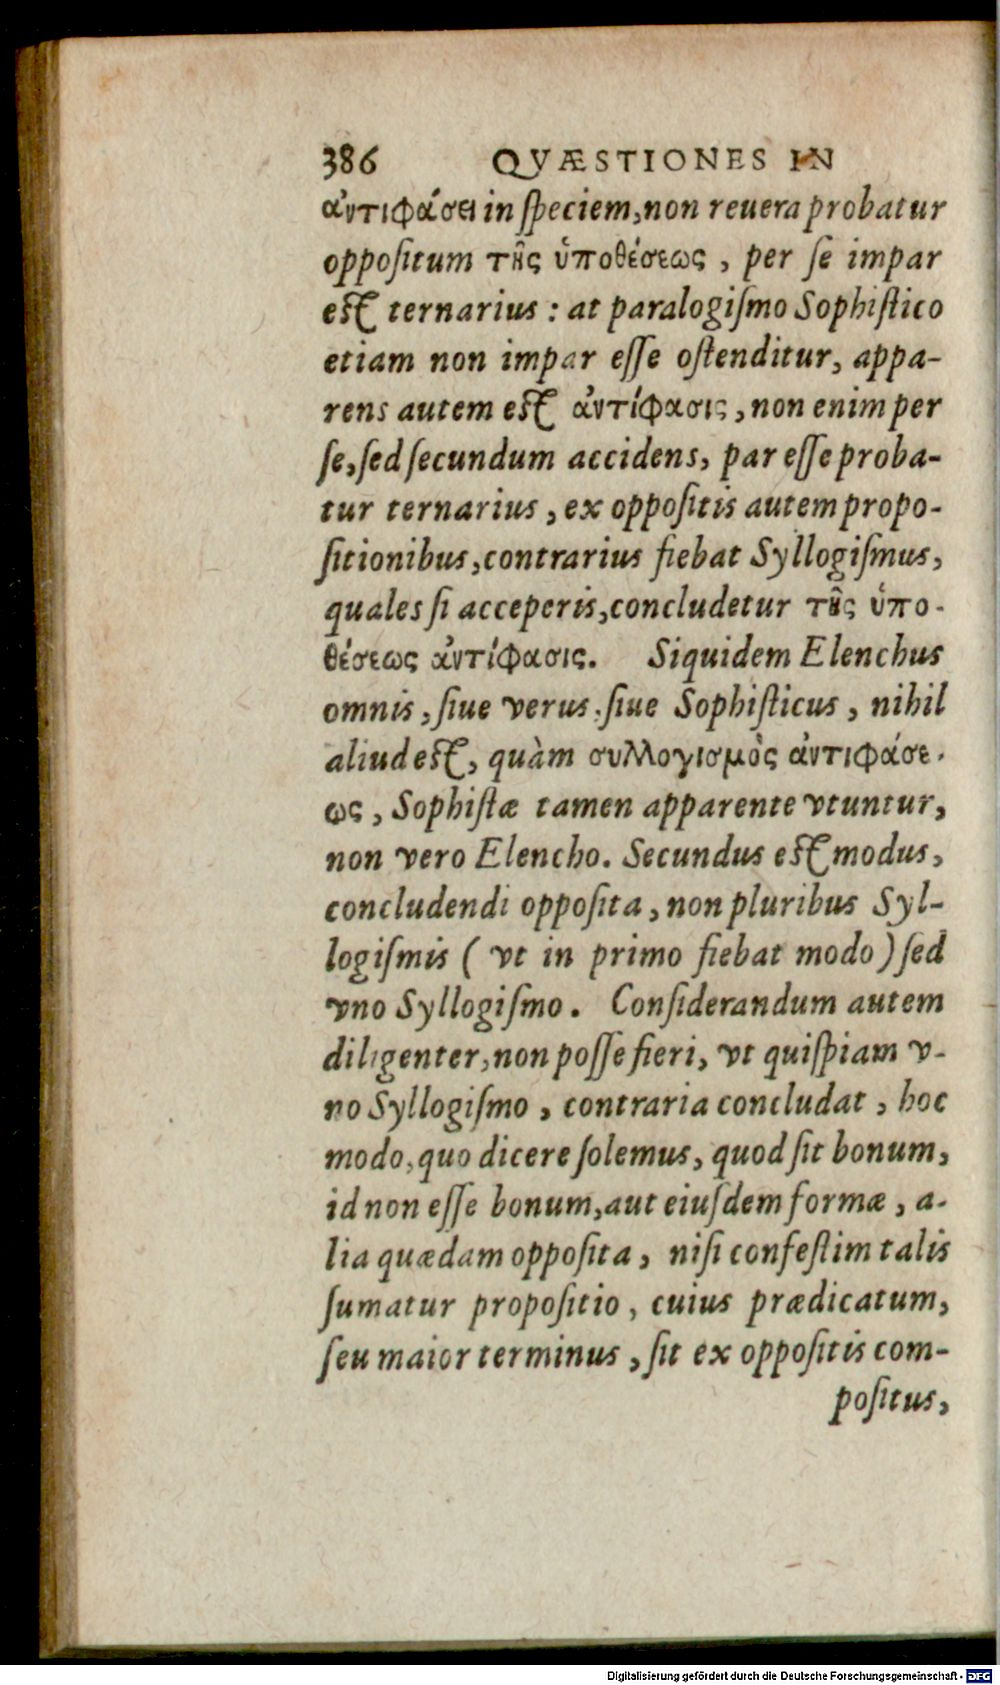 386 QVÆSTIONES IN
ἀντιφάσει in ſpeciem, non reuera probatur
oppoſitum τῆς ὑποθέσεως, per ſe impar
eſt ternarius: at paralogiſmo Sophiſtico
etiam non impar eſſe oſtenditur, appa-
rens autem eſt ἀντίφασις, non enim per
ſe, ſed ſecundum accidens, par eſſe proba-
tur ternarius, ex oppoſitis autem propo-
ſitionibus, contrarius fiebat Syllogiſmus,
quales ſi acceperis, concludetur τῆς ὑπο-
θέσεως ἀντίφασις. Siquidem Elenchus
omnis, ſiue verus, ſiue Sophiſticus, nihil
aliud eſt, quàm συλλογισμὸς ἀντιφάσε-
ως, Sophiſtæ tamen apparente vtuntur,
non vero Elencho. Secundus eſt modus,
concludendi oppoſita, non pluribus Syl-
logiſmis ( vt in primo fiebat modo ) ſed
vno Syllogiſmo. Conſiderandum autem
diligenter, non poſſe fieri, vt quiſpiam v-
no Syllogiſmo, contraria concludat, hoc
modo, quo dicere ſolemus, quod ſit bonum,
id non eſſe bonum, aut eiuſdem formæ, a-
lia quædam oppoſita, niſi confeſtim talis
ſumatur propoſitio, cuius prædicatum,
ſeu maior terminus, ſit ex oppoſitis com-
poſitus,
Digitalisierung gefördert durch die Deutsche Forschungsgemeinschaft - DFG